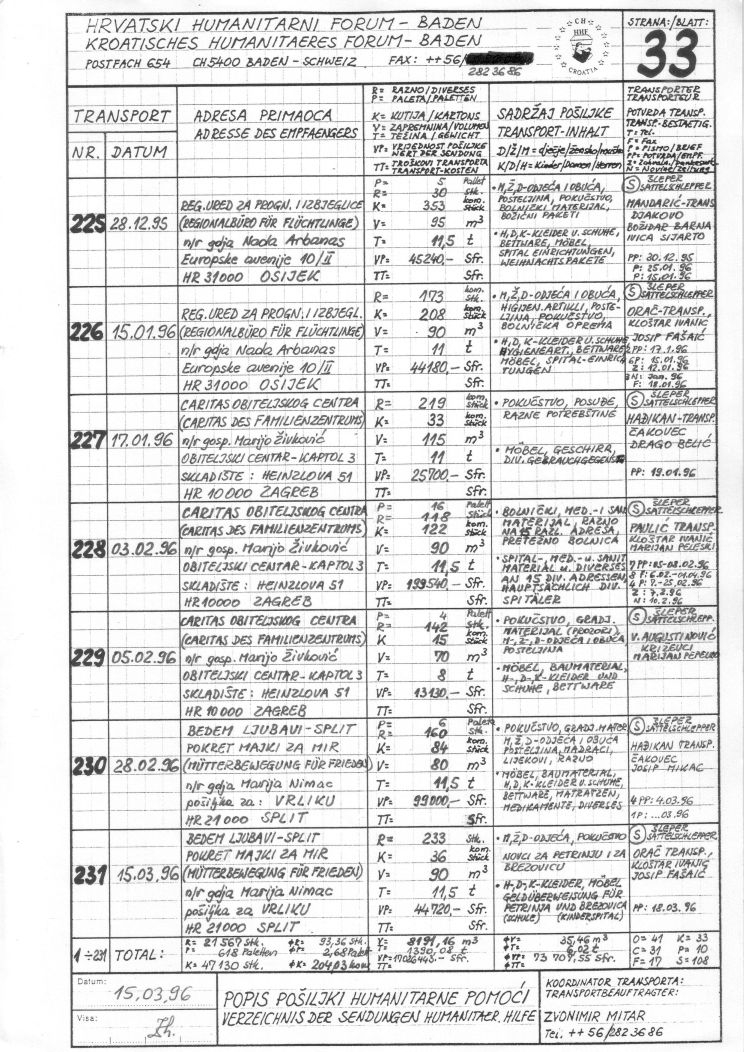 HRVATSKI HUMANITARNI FORUM - BADEN
KROATISCHES HUMANITAERES FORUM - BADEN
POSTFACH 654 CH 5400 BADEN - SCHWEIZ FAX: ++56/
282 36 86
CH
HHF
CROATIA
STRANA:/BLATT:
33
TRANSPORT
NR. DATUM
ADRESA PRIMAOCA
ADRESSE DES EMPFAENGERS
R= RAZNO/DIVERSES
P= PALETA/PALETTEN
K= KUTIJA/KARTONS
V= ZAPREMNINA/VOLUMEN
T= TEŽINA/GEWICHT
VP= VRIJEDNOST POŠILJKE
WERT DER SENDUNG
TT= TROŠKOVI TRANSPORTA
TRANSPORT-KOSTEN
SADRŽAJ POŠILJKE
TRANSPORT-INHALT
D/Ž/M= dječje/žensko/muško
K/D/H= Kinder/Damen/Herren
TRANSPORTER
TRANSPORTEUR
POTVRDA TRANSP.
TRANSP.-BESTAETIG.
T= Tel.
F= Fax
P= PISMO/BRIEF
PP= POTVRDA/EMPF.
N= Novine/Zeitung
225 28.12.95
REG. URED ZA PROGN. I IZBJEGLICE
(REGIONALBÜRO FÜR FLÜCHTLINGE)
n/r gdja Nada Arbanas
Europske avenije 10/II
HR 31000 OSIJEK
P= 5 Palett
R= 30 Stk.
K= 353 kom. Stück
V= 95 m³
T= 11,5 t
VP= 45240,- Sfr.
TT= Sfr.
• M,Ž,D-ODJEĆA I OBUĆA,
POSTELJINA, POKUĆSTVO,
BOLNIČKI MATERIJAL,
BOŽIČNI PAKETI
• H,D,K-KLEIDER U. SCHUHE,
BETTWARE, MÖBEL,
SPITAL EINRICHTUNGEN,
WEIHNACHTSPAKETE
S ŠLEPER
SATTELSCHLEPPER
MANDARIĆ-TRANS
DJAKOVO
BOŽIDAR BARNA
IVICA SIJARTO
PP: 30.12.95
P: 25.01.96
P: 15.01.96
226 15.01.96
REG. URED ZA PROGN. I IZBJEGL.
(REGIONALBÜRO FÜR FLÜCHTLINGE)
n/r gdja Nada Arbanas
Europske avenije 10/II
HR 31000 OSIJEK
R= 173 kom. Stk.
K= 208 kom. Stück
V= 90 m³
T= 11 t
VP= 44180,- Sfr.
TT= Sfr.
• M,Ž,D-ODJEĆA I OBUĆA,
HIGIJEN. ARTIKLI, POSTE-
LJINA, POKUĆSTVO,
BOLNIČKA OPREMA
• H,D,K-KLEIDER U. SCHUHE,
HYGIENEART., BETTWARE,
MÖBEL, SPITAL-EINRICH
TUNGEN
S ŠLEPER
SATTELSCHLEPPER
ORAČ-TRANSP.,
KLOŠTAR IVANIĆ
JOSIP FAŠAIĆ
2PP: 17.1.96
6P: 15.01.96
Z: 12.01.96
3N: Jan. 96
F: 18.01.96
227 17.01.96
CARITAS OBITELJSKOG CENTRA
(CARITAS DES FAMILIENZENTRUMS)
n/r gosp. Marijo Živković
OBITELJSKI CENTAR-KAPTOL 3
SKLADIŠTE: HEINZLOVA 51
HR 10000 ZAGREB
R= 219 kom.
K= 33 kom. Stück
V= 115 m³
T= 11 t
VP= 25700,- Sfr.
TT= Sfr.
• POKUĆSTVO, POSUĐE,
RAZNE POTREBŠTINE
• MÖBEL, GESCHIRR,
DIV. GEBRAUCHGEGENST.
S ŠLEPER
SATTELSCHLEPPER
HAĐIKAN-TRANSP.
ČAKOVEC
DRAGO BELIĆ
PP: 19.01.96
228 03.02.96
CARITAS OBITELJSKOG CENTRA
(CARITAS DES FAMILIENZENTRUMS)
n/r gosp. Marijo Živković
OBITELJSKI CENTAR-KAPTOL 3
SKLADIŠTE: HEINZLOVA 51
HR 10000 ZAGREB
P= 16 Palett
R= 118 Stück
K= 122 kom. Stück
V= 90 m³
T= 11,5 t
VP= 199540,- Sfr.
TT= Sfr.
• BOLNIČKI, MED.- I SAN.
MATERIJAL, RAZNO
NA 15 RAZL. ADRESA,
PRETEŽNO BOLNICA
• SPITAL-, MED.- u. SANIT.
MATERIAL u. DIVERSES
AN 15 DIV. ADRESSEN,
HAUPTSÄCHLICH DIV.
SPITÄLER
S ŠLEPER
SATTELSCHLEPP.
PAULIĆ TRANSP.
KLOŠTAR IVANIĆ
MARIJAN PELESKI
7 PP: 05-08.02.96
8 F: 6.02.-01.04.96
4 P: 7.-25.02.96
Z: 7.2.96
N: 10.2.96
229 05.02.96
CARITAS OBITELJSKOG CENTRA
(CARITAS DES FAMILIENZENTRUMS)
n/r gosp. Marijo Živković
OBITELJSKI CENTAR-KAPTOL 3
SKLADIŠTE: HEINZLOVA 51
HR 10000 ZAGREB
P= 4 Palett
R= 142 Stk.
K 15 kom. Stück
V= 70 m³
T= 8 t
VP= 13130.- Sfr.
TT= Sfr.
• POKUĆSTVO, GRADJ.
MATERIJAL (PROZORI),
M-,Ž-,D-ODJEĆA I OBUĆA
POSTELJINA
• MÖBEL, BAUMATERIAL,
H-,D-,K-KLEIDER UND
SCHUHE, BETTWARE
S ŠLEPER
SATTELSCHLEPP.
V. AUGUSTINOVIĆ
KRIŽEVCI
MARIJAN PEPELKO
230 28.02.96
BEDEM LJUBAVI-SPLIT
POKRET MAJKI ZA MIR
(MÜTTERBEWEGUNG FÜR FRIEDEN)
n/r gdja Marija Nimac
pošiljka za: VRLIKU
HR 21000 SPLIT
P= 6 Palete
R= 160 Stk.
K= 84 kom. Stück
V= 80 m³
T= 11,5 t
VP= 99000,- Sfr.
TT= Sfr.
• POKUĆSTVO, GRADJ. MATER.
M,Ž,D-ODJEĆA I OBUĆA
POSTELJINA, MADRACI,
LIJEKOVI, RAZNO
• MÖBEL, BAUMATERIAL,
H,D,K-KLEIDER U. SCHUHE,
BETTWARE, MATRATZEN,
MEDIKAMENTE, DIVERSES
S ŠLEPER
SATTELSCHLEPPER
HAĐIKAN TRANSP.
ČAKOVEC
JOSIP MIKAC
4 PP: 4.03.96
1P: ...03.96
231 15.03.96
BEDEM LJUBAVI-SPLIT
POKRET MAJKI ZA MIR
(MÜTTERBEWEGUNG FÜR FRIEDEN)
n/r gdja Marija Nimac
pošiljka za VRLIKU
HR 21000 SPLIT
R= 233 Stk.
K= 36 kom. Stück
V= 90 m³
T= 11,5 t
VP= 44720,- Sfr.
TT= Sfr.
• M,Ž,D-ODJEĆA, POKUĆSTVO
NOVCI ZA PETRINJU I ZA
BREZOVICU
• H,D,K-KLEIDER, MÖBEL
GELDÜBERWEISUNG FÜR
PETRINJA UND BREZOVICA
(SCHULE) (KINDERSPITAL)
S ŠLEPER
SATTELSCHLEPPER
ORAČ TRANSP.,
KLOŠTAR IVANIĆ
JOSIP FAŠAIĆ
PP: 18.03.96
1÷231 TOTAL:
R= 21567 Stk. ΦR= 93,36 Stk.
P= 618 Paletten Φ= 2,68 Palett
K= 47130 Stk. ΦK= 204,03 kom
V= 8191,16 m³
T= 1390,08 t
VP= 17026443.- Sfr.
TT=
ΦV= 35,46 m³
ΦT= 6,02 t
ΦVP= 73 707,55 Sfr.
ΦTT=
O=41 K=33
C=31 P=10
F=17 S=108
Datum:
15.03.96
Visa:
POPIS POŠILJKI HUMANITARNE POMOĆI
VERZEICHNIS DER SENDUNGEN HUMANITAER. HILFE
KOORDINATOR TRANSPORTA:
TRANSPORTBEAUFTRAGTER:
ZVONIMIR MITAR
Tel. ++56/282 36 86